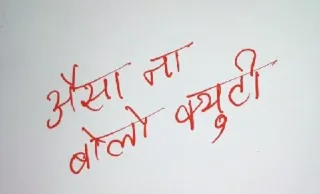 अैसा ना
बोलो क्युटी